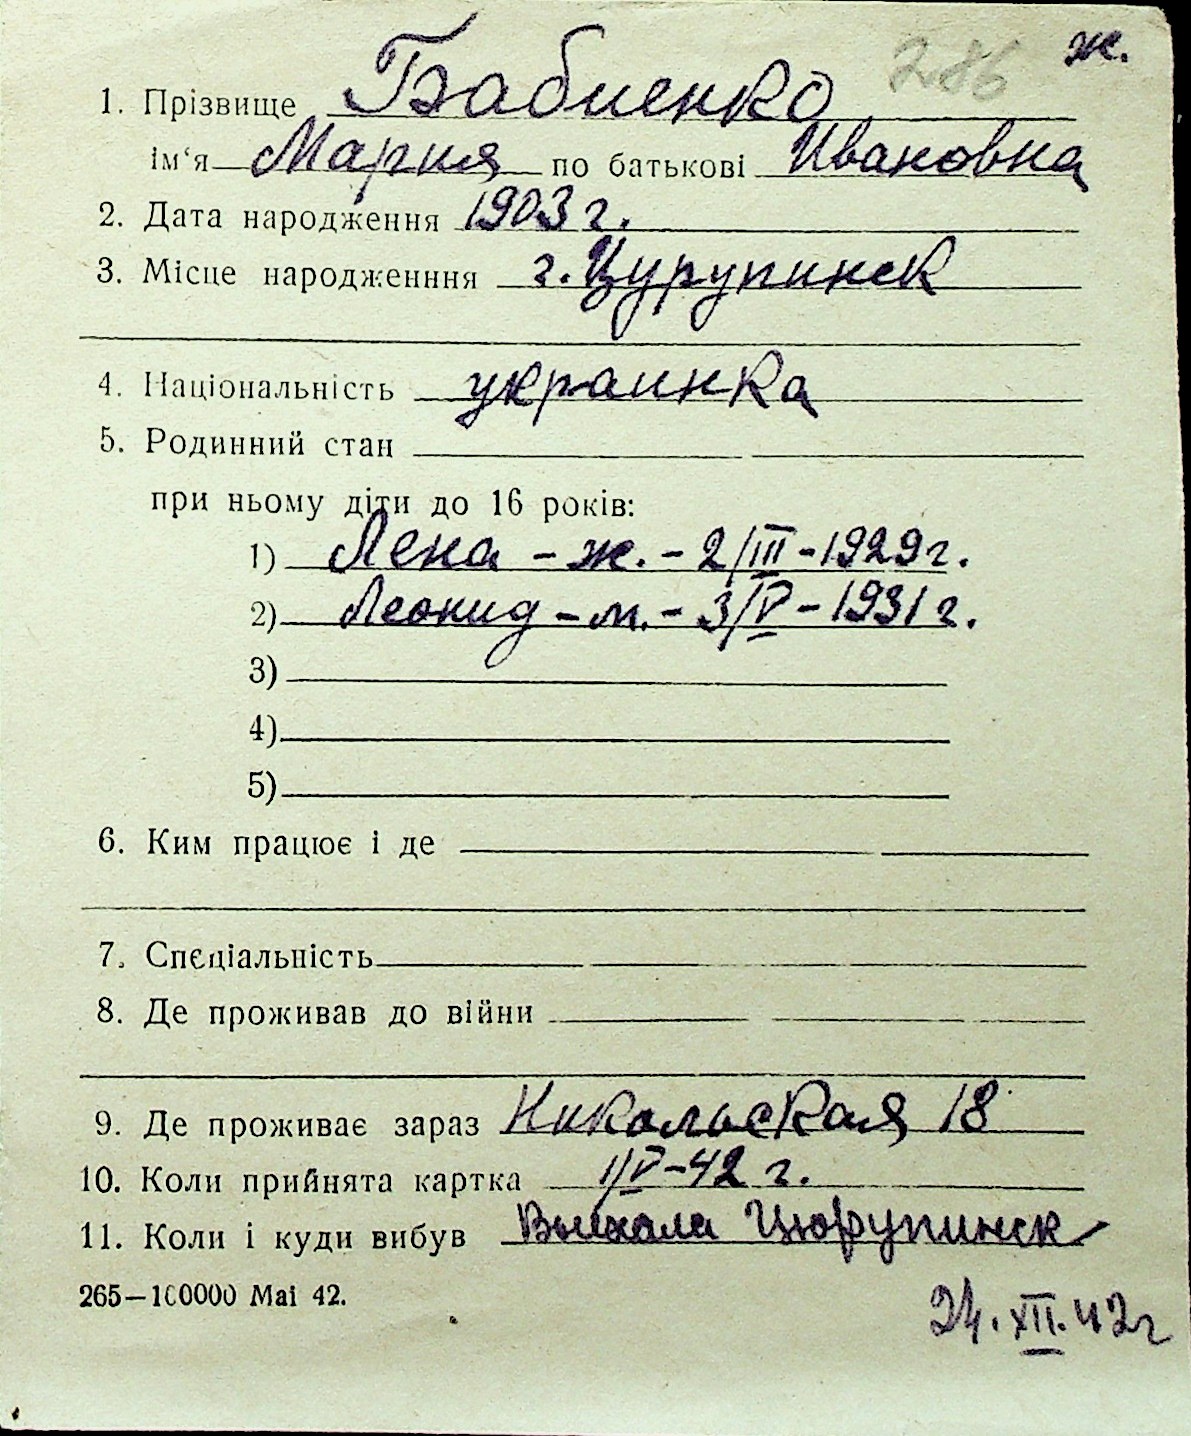 286 ж.
1. Прізвище Бабиенко
ім‘я Мария по батькові Ивановна
2. Дата народження 1903 г.
3. Місце народженння г. Цурупинск
4. Національність украинка
5. Родинний стан
при ньому діти до 16 років:
1) Лена - ж. - 2/III - 1929 г.
2) Леонид - м. - 3/V - 1931 г.
3)
4)
5)
6. Ким працює і де
7. Спєціальність
8. Де проживав до війни
9. Де проживає зараз Никольская 18
10. Коли прийнята картка 1/V-42 г.
11. Коли і куди вибув Выехала Цюрупинск
265—100000 Mai 42.
24. XII. 42 г